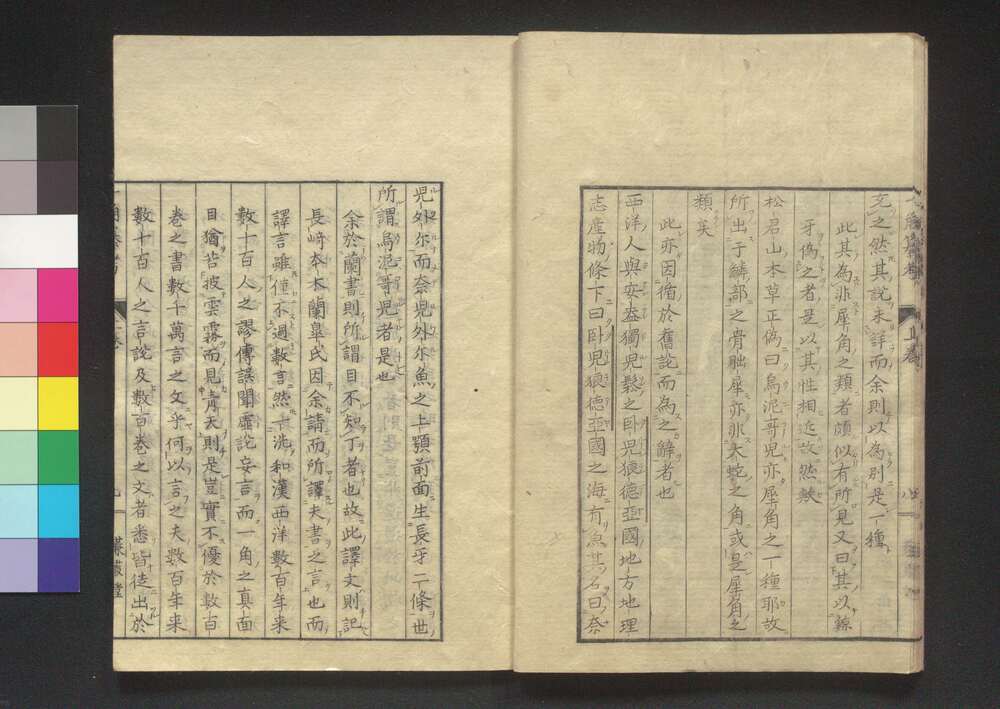 文之然其說未詳而余則以為別是一種
此其為非犀角之類者頗似有所見又曰其以鯨
牙偽之者是以其性相近故然歟
松君山本草正偽曰烏泥哥兒亦犀角之一種耶故
所出于鱗部之骨貀犀亦非大蛇之角或是犀角之
類矣
此亦因循於舊說而為之解者也
西洋人與安盎獨兒鬆之臥兒狼德亞國地方地理
志產物條下曰臥兒狼德亞國之海有魚其名曰奈
兒外尔而奈兒外尔魚之上顎前面生長牙一條世
所謂烏泥哥兒者是也
余於蘭書則所謂目不知丁者也故此譯文則記
長﨑本木蘭皐氏因余請而所譯夫書之言也而
譯言雖僅不過數言然古流和漢西洋數百年來
數十百人之謬傳誤聞虛說妄言而一角之真面
目猶若披雲霧而見青天則是豈實不優於數百
卷之書數千萬言之文乎何以言之夫數百年來
數十百人之言說及數百卷之文者悉皆徒出於
蒹葭堂